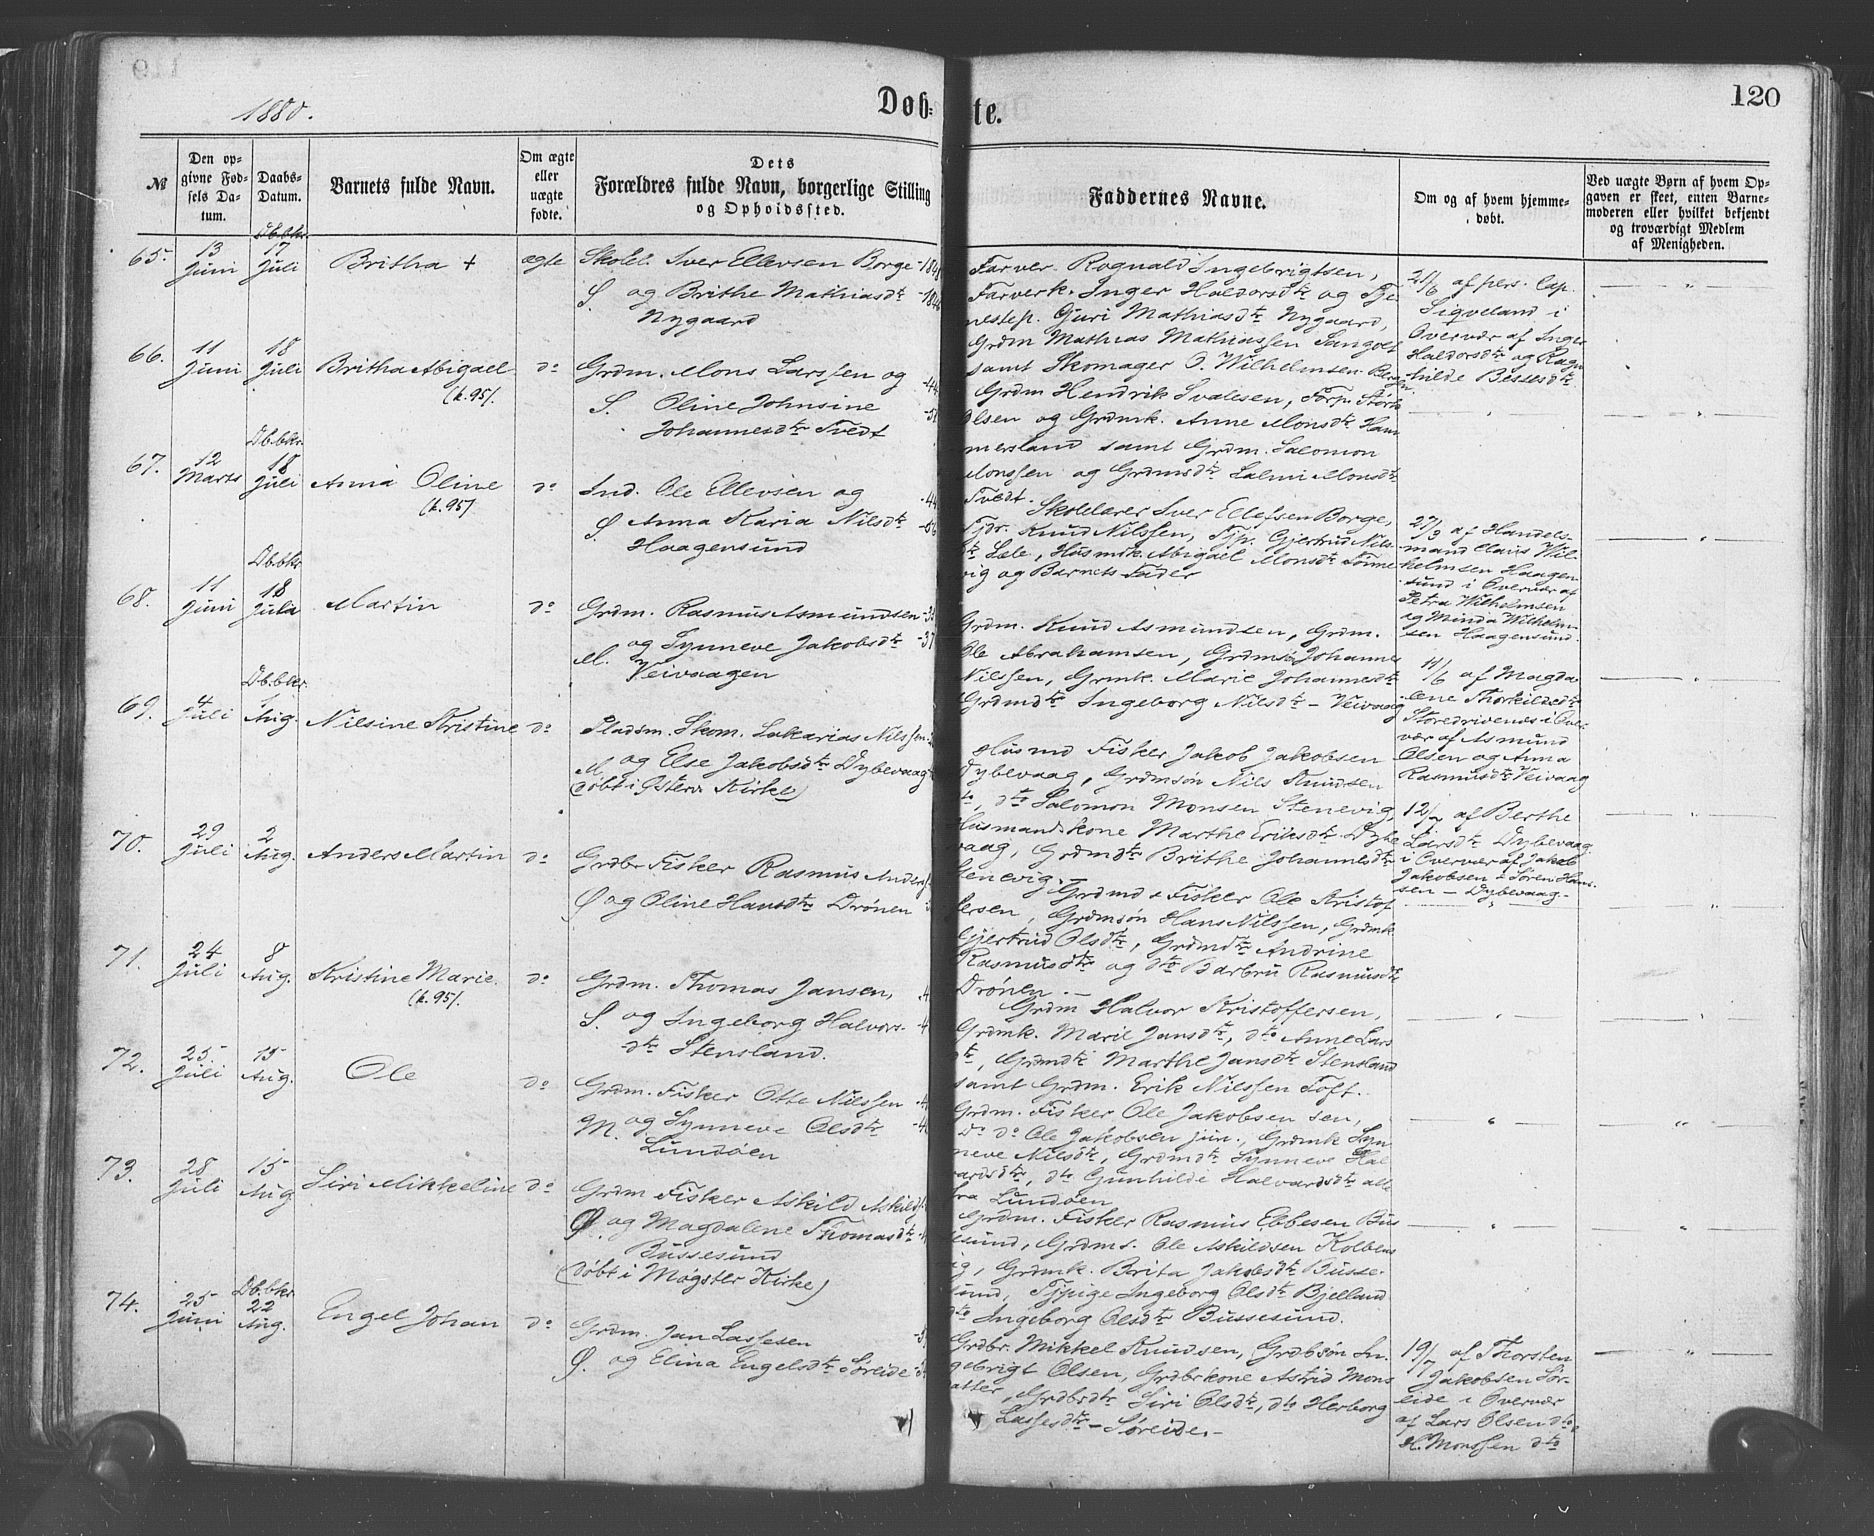 1880.
Døb- te.
120
№
Den opgivne Fødsels Datum.
Daabs-Datum.
Barnets fulde Navn.
Om ægte eller uægte fødte.
Dets Forældres fulde Navn, borgerlige Stilling og Opholdssted.
Faddernes Navne.
Om og af hvem hjemmedøbt.
Ved uægte Børn af hvem Opgaven er skeet, enten Barnemoderen eller hvilket bekjendt og troværdigt Medlem af Menigheden.
65. 13 Juni Db.bkr. 17 Juli Britha + ægte
Skolel. Iver Ellevsen Borge
S. og Brithe Mathiasdtr
Nygaard
Farver. Rognald Ingebrigtsen,
Farverk. Inger Haldorsdtr og Tje
nestep. Guri Mathiasdtr Nygaard,
Grdm Mathias Mathiassen
samt Skomager O. Wilhelmsen Bergen
21/6 af pers. Cap.
Siqveland i
Overvær af Inger
Haldorsdtr og Ragn
hilde Bessesdtr
66. 11 Juni 18 Juli Britha Abigael do
(k. 95).
Grdm. Mons Larssen og
S. Oline Johnsine
Johannesdtr Tvedt
Grdm Hendrik Svalesen, Forp. Størk
Olsen og Grdmk. Anne Monsdtr Ham
mersland samt Grdm. Salomon
Monssen og Grdmsdtr Lalini Monsdtr
Tvedt.
67. 12 Marts Db.bkr. 18 Juli Anna Oline do
(k. 95)
Ind. Ole Ellevsen og -44
S Anna Karia Nilsdtr
Haagensund
Skolelærer Iver Ellefsen Borge,
Tjdr. Knud Nilssen, Tjp. Gjertrud Nils
dtr Lale, Husmk. Abigael Monsdtr Tønne
vig og Barnets Fader
27/3 af Handels-
mand Claus Wil-
helmsen Haagen
sund i Overvær af
Petra Wilhelmsen
og Minda Wilhelm
sen Haagensund.
68. 11 Juni Db.bkr 18 Juli Martin do
Grdm. Rasmus Asmundsen
M. og Synneve Jakobsdtr -37
Veivaagen
Grdm. Knud Asmundsen, Grdm.
Ole Abrahamsen, Grdms. Johannes
Nilssen, Grmk. Marie Johannesdtr
Grdmdtr Ingeborg Nilsdtr - Veivaag
11/6 af Magda-
lene Thorkildsdtr
Storedrivenes i Over
vær af Asmund
Olsen og Anna
Rasmusdtr Veivaag
69. 4 Juli Db.bkr. 1 Aug. Nilsine Kristine do
Pladsm. Skom. Zakarias Nilssen
M. og Else Jakobsdtr Dybevaag
(døbt i Østerv Kirke)
Husmd Fisker Jakob Jakobsen
Dybevaag, Grdmsøn Nils Knudsen
to, dto Salomon Monsen Stenevig,
Husmandskone Marthe Eriksdtr Dybe
vaag, Grdmdtr Brithe Johannesdtr
Stenevig.
12/7 af Berthe
Larsdtr Dybevaag
i Overvær af Jakob
Jakobsen & Søren Hans-
sen - Dybevaag-
70. 29 Juli 2 Aug. Anders Martin do
Grdbr Fisker Rasmus Anders
Ø og Oline Hansdtr Drönen
Grdmd & Fisker Ole Kristof
fersen, Grdmsøn Hans Nilssen, Grdmk
Gjertrud Olsdtr, Grdmdtr Andrine
Rasmusdtr og dto Barbru Rasmusdtr
Drönen. -
71. 24 Juli 8 Aug. Kristine Marie. do
(k. 95).
Grdm. Thomas Jansen,
S. og Ingeborg Halvors-
dtr Stensland.
Grdm Halvor Kristoffersen,
Grdmk. Maril Jansdtr, dto Anne Lars
dtr, Grdmdtr Marthe Jansdtr Stensland
samt Grdm. Erik Nilssen Toft.
72. 25 Juli 15 Aug. Ole do
Grdm. Fisker Otte Nilssen
M. og Synneve Olsdtr
Lundöen
Grdm. Fisker Ole Jakobsen sen,
Do do Ole Jakobsen jun., Grdmk Syn
neve Nilsdtr, Grdmdtr Synneve Hal
vardsdtr, dto Gunhilde Halvardsdtr alle
fra Lundöen
73. 28 Juli 15 Aug Siri Mikkeline do
Grdm Fisker Askild Askilds
Ø. og Magdalene Thomasdtr
Bussesund
(døbt i Møgster Kirke)
Grdm. Fisker Rasmus Ebbesen Bus
sesund, Grdms. Ole Askildsen Kolbens
vig, Grdmk. Brita Jakobsdtr Busse-
sund, Tjpige Ingeborg Olsdtr Bjelland
dto Ingeborg Olsdtr Bussesund.
74. 25 Juni Db.bkr 22 Aug. Engel Johan do
Grdm. Jan Lassesen
Ø. og Elina Engelsdtr Søreide
Grdbr. Mikkel Knudsen, Grdbsøn In
gebrigt Olsen, Grdbrkone Astrid Mons
datter, Grdbrdtr Siri Olsdtr, dto Herborg
Lassesdtr - Søreide.-
19/7 af Thorsten
Jakobsen Sør-
eide i Overvær
af Lars Olsen dto
H. Monssen dto